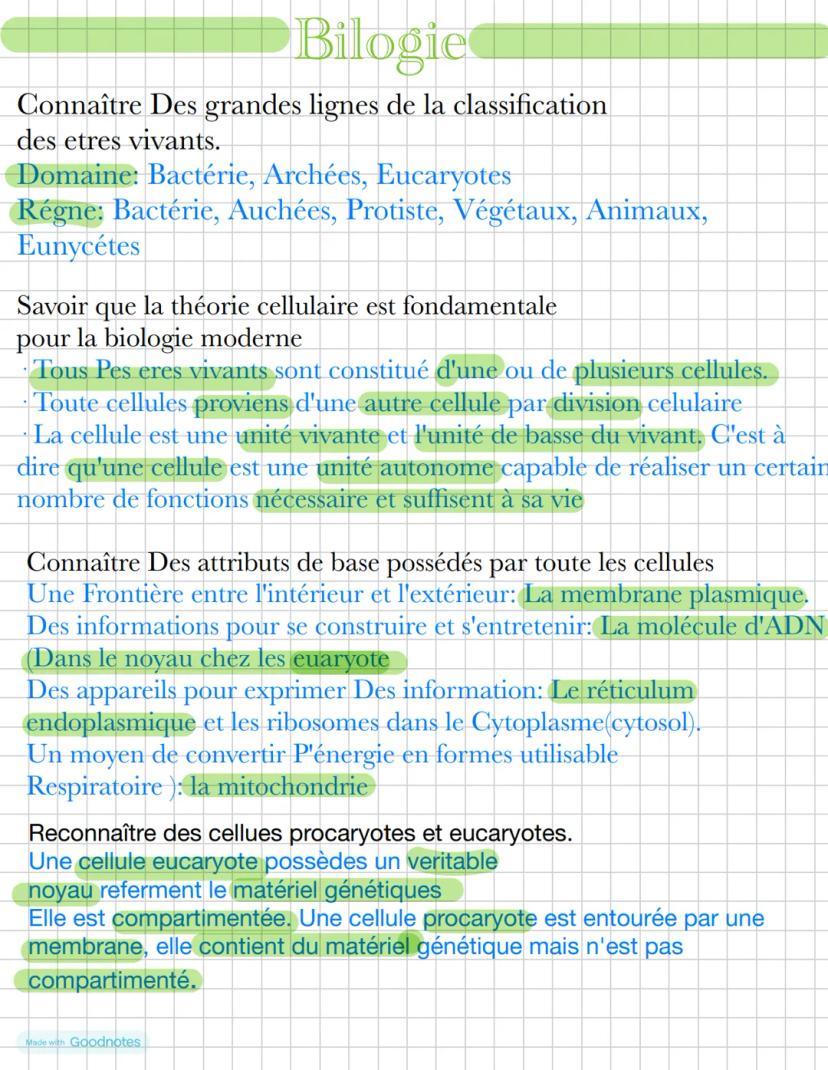 Bilogie
Connaître Des grandes lignes de la classification
des etres vivants.
Domaine: Bactérie, Archées, Eucaryotes
Régne: Bactérie, Auchées, Protiste, Végétaux, Animaux,
Eunycétes
Savoir que la théorie cellulaire est fondamentale
pour la biologie moderne
· Tous Pes eres vivants sont constitué d'une ou de plusieurs cellules.
· Toute cellules proviens d'une autre cellule par division celulaire
· La cellule est une unité vivante et l'unité de basse du vivant. C'est à
dire qu'une cellule est une unité autonome capable de réaliser un certain
nombre de fonctions nécessaire et suffisent à sa vie
Connaître Des attributs de base possédés par toute les cellules
Une Frontière entre l'intérieur et l'extérieur: La membrane plasmique.
Des informations pour se construire et s'entretenir: La molécule d'ADN
(Dans le noyau chez les euaryote
Des appareils pour exprimer Des information: Le réticulum
endoplasmique et les ribosomes dans le Cytoplasme(cytosol).
Un moyen de convertir P'énergie en formes utilisable
Respiratoire ): la mitochondrie
Reconnaître des cellues procaryotes et eucaryotes.
Une cellule eucaryote possèdes un veritable
noyau referment le matériel génétiques
Elle est compartimentée. Une cellule procaryote est entourée par une
membrane, elle contient du matériel génétique mais n'est pas
compartimenté.
Made with Goodnotes